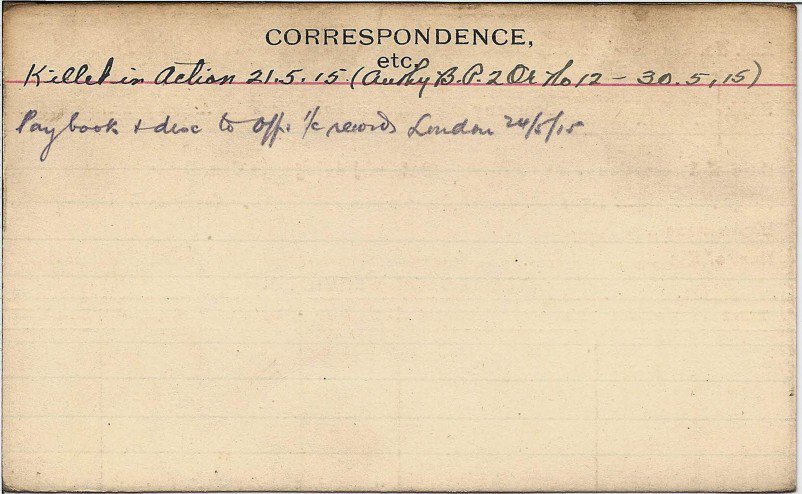 CORRESPONDENCE,
etc.
Killed in Action 21.5.15 (Authy B.P. 2 Or No 12 - 30.5.15)
Paybook & disc to Off. i/c records London 24/5/15